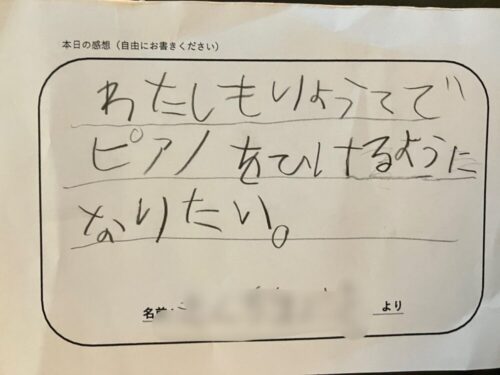 本日の感想（自由にお書きください）
わたしもりょうてで
ピアノをひけるように
なりたい。
名前
より